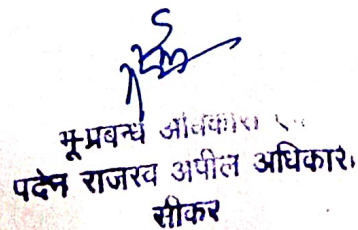 भू-प्रबन्ध
पदेन राजस्व अपील अधिकारी
सीकर